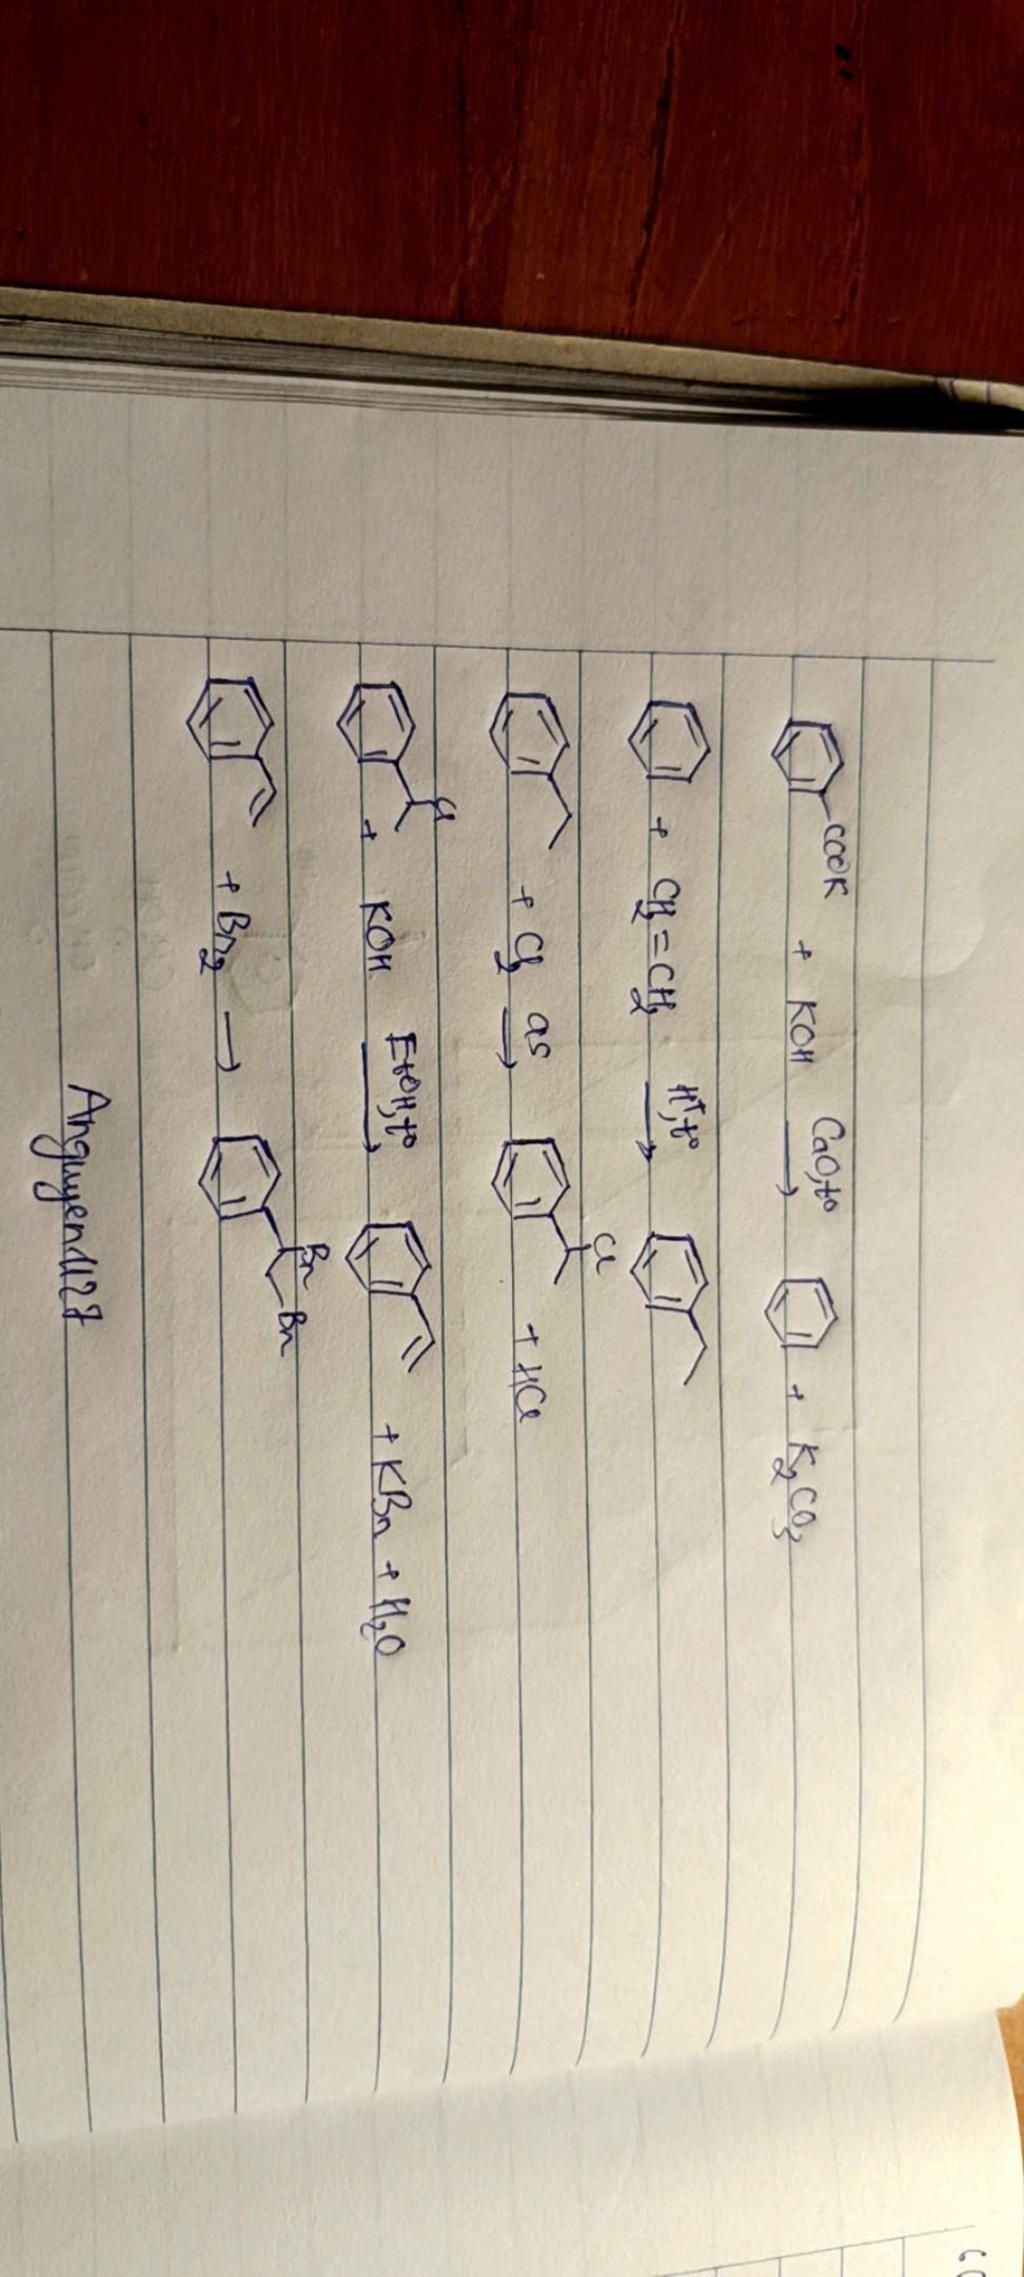 COOK + KOH CaO,t° → + K₂CO₃
+ CH₂=CH₂ H⁺,t° →
+ Cl₂ as → Cl + HCl
Cl + KOH EtOH,t° → + KBr + H₂O
+ Br₂ → Br Br
Anguyen1127